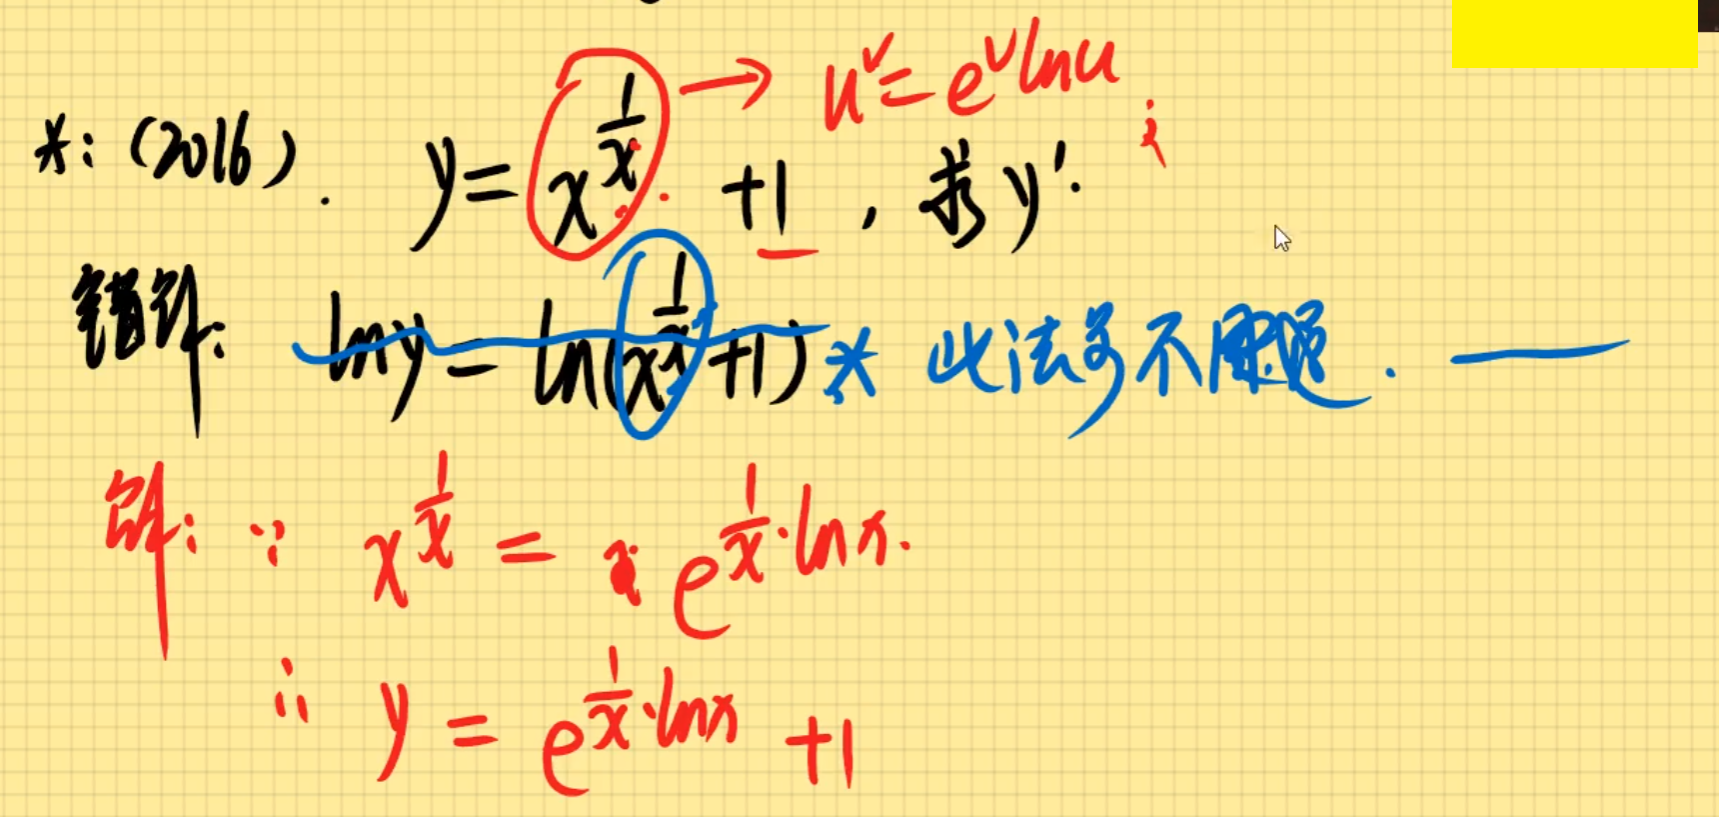 *: (2016). y = x^{\frac{1}{x}} + 1, 求 y'. → u^v = e^{v ln u}
错解: ln y = ln(x^{\frac{1}{x}} + 1) * 此法不适.
解: ∵ x^{\frac{1}{x}} = e^{\frac{1}{x}·ln x}.
∴ y = e^{\frac{1}{x}·ln x} + 1